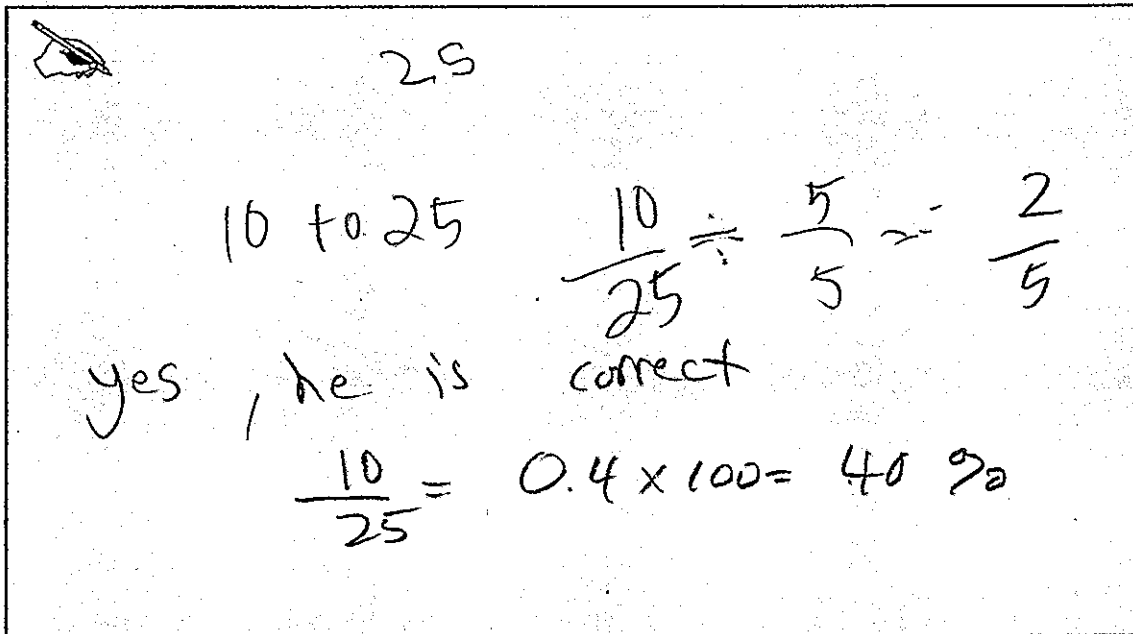 25
10 to 25 10/25 ÷ 5/5 = 2/5
yes, he is correct
10/25 = 0.4 x 100 = 40 %